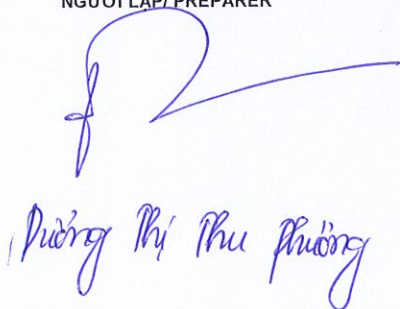 NGƯỜI LẬP/ PREPARER
Dương Thị Thu Phương